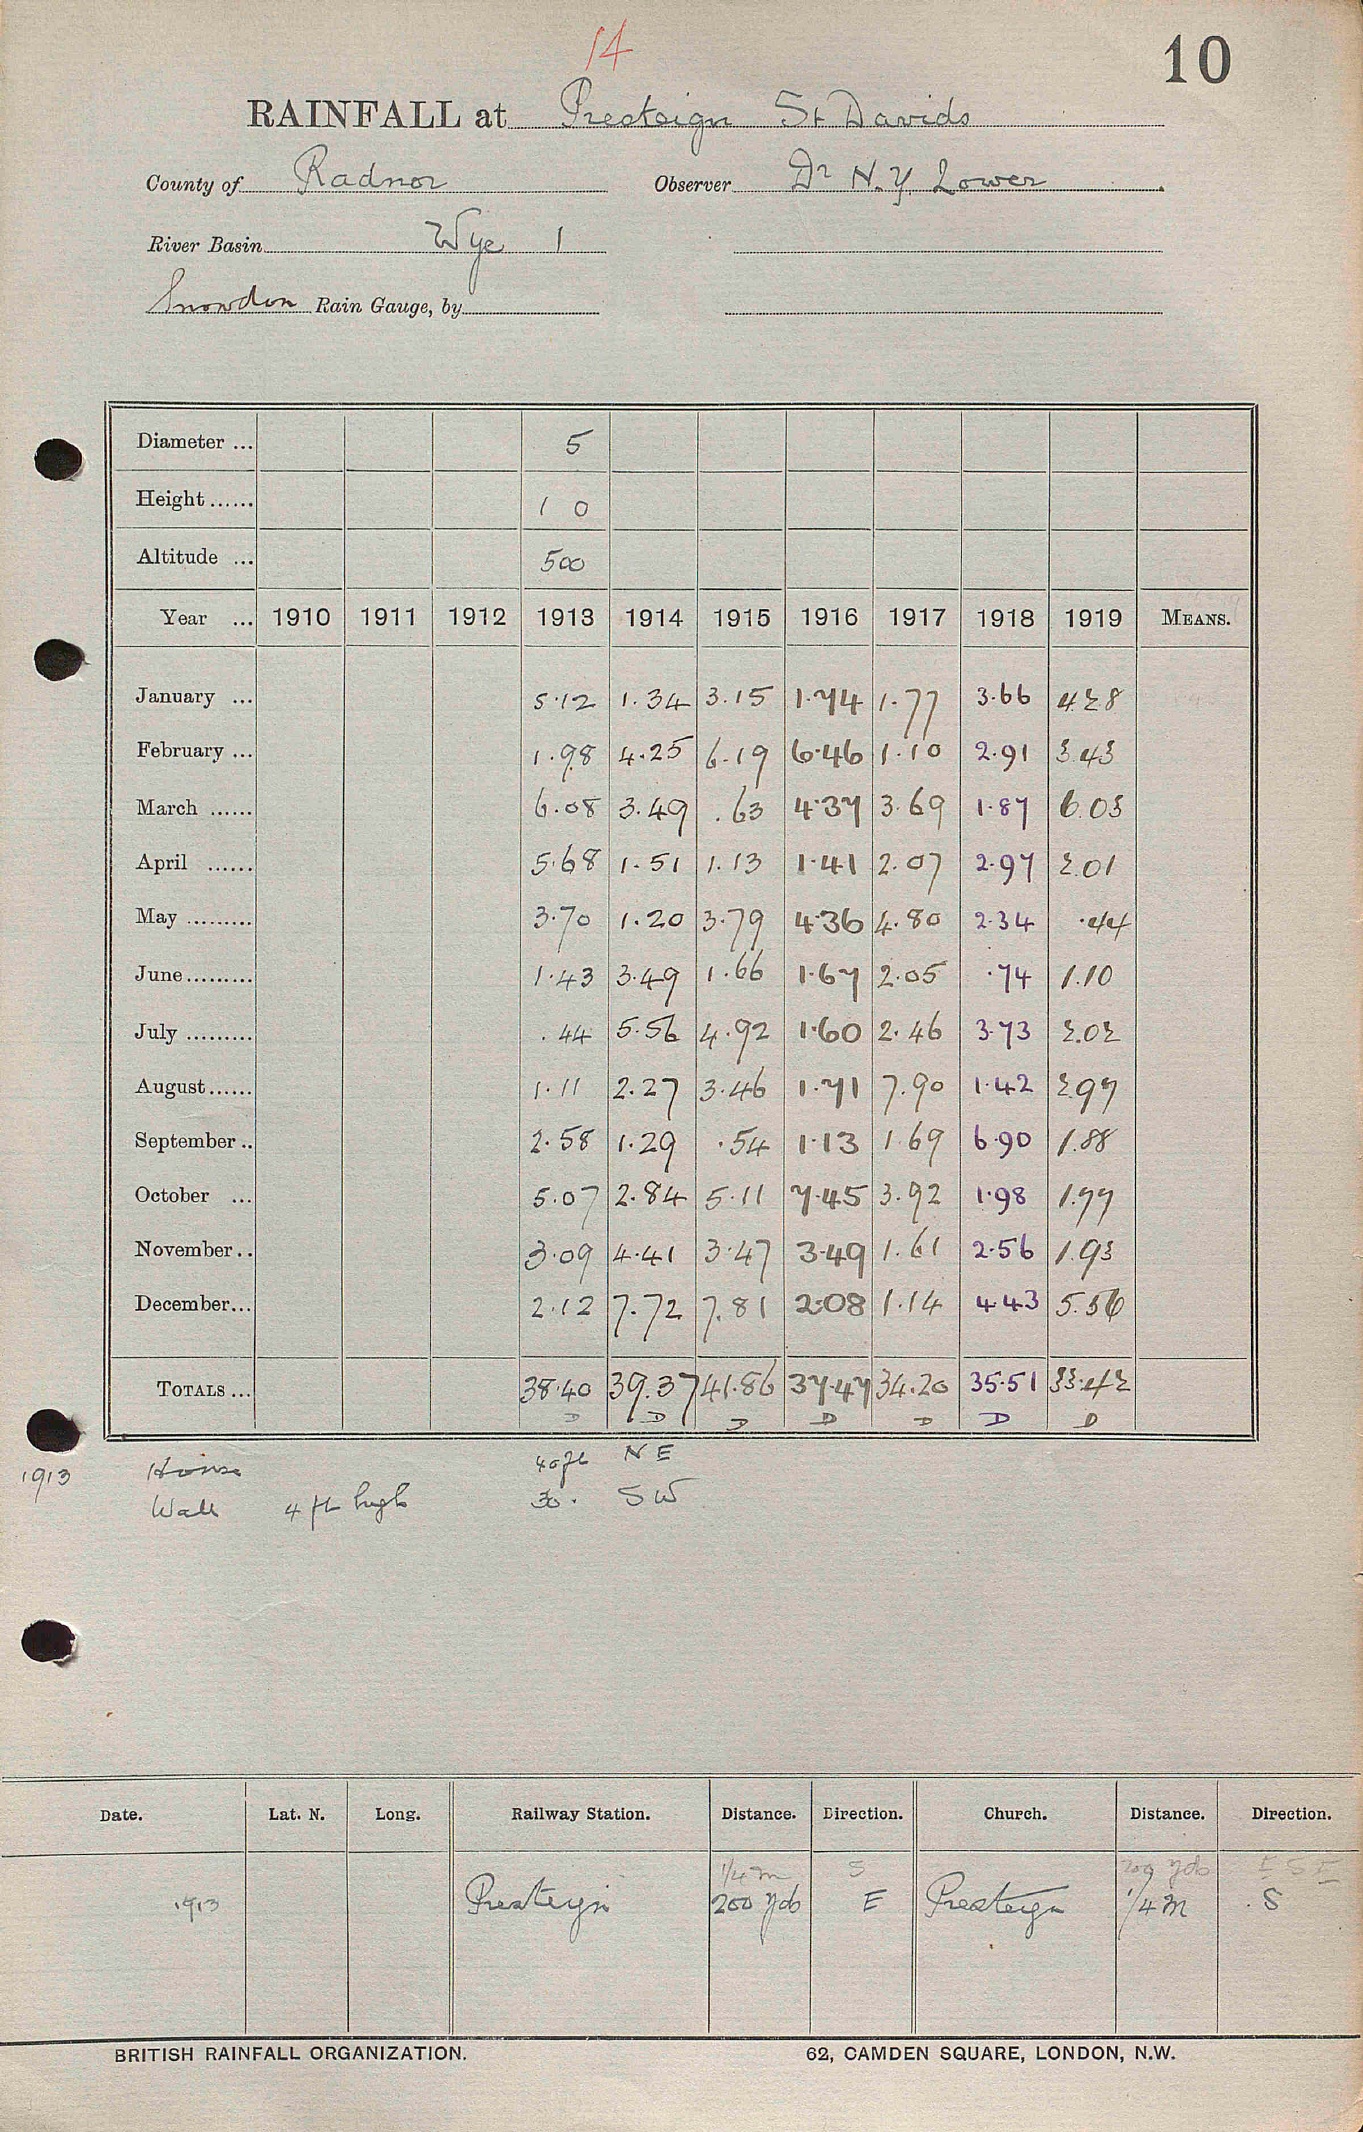 14
10
RAINFALL at Presteign St Davids
County of Radnor Observer Dr N. Y. Lower
River Basin Wye 1
Snowdon Rain Gauge, by
Diameter ... 5
Height ...... 1 0
Altitude ... 500
Year ... 1910 1911 1912 1913 1914 1915 1916 1917 1918 1919 MEANS.
January ... 5.12 1.34 3.15 1.74 1.77 3.66 4.28
February ... 1.98 4.25 6.19 6.46 1.10 2.91 3.43
March ...... 6.08 3.49 .63 4.37 3.69 1.87 6.03
April ...... 5.68 1.51 1.13 1.41 2.07 2.97 2.01
May ......... 3.70 1.20 3.79 4.36 4.80 2.34 .44
June ......... 1.43 3.49 1.66 1.67 2.05 .74 1.10
July ......... .44 5.56 4.92 1.60 2.46 3.73 2.02
August ...... 1.11 2.27 3.46 1.71 7.90 1.42 2.97
September .. 2.58 1.29 .54 1.13 1.69 6.90 1.88
October ... 5.07 2.84 5.11 7.45 3.92 1.98 1.77
November .. 3.09 4.41 3.47 3.49 1.61 2.56 1.93
December ... 2.12 7.72 7.81 2.08 1.14 4.43 5.56
TOTALS ... 38.40 39.37 41.86 37.47 34.20 35.51 33.42
D D D D D D D
1913 House 40 ft N E
Wall 4 ft high 30 . S W
Date. Lat. N. Long. Railway Station. Distance. Direction. Church. Distance. Direction.
1/4 m S 200 yds E S E
1913 Presteign 200 yds E Presteign 1/4 m S
BRITISH RAINFALL ORGANIZATION. 62, CAMDEN SQUARE, LONDON, N.W.